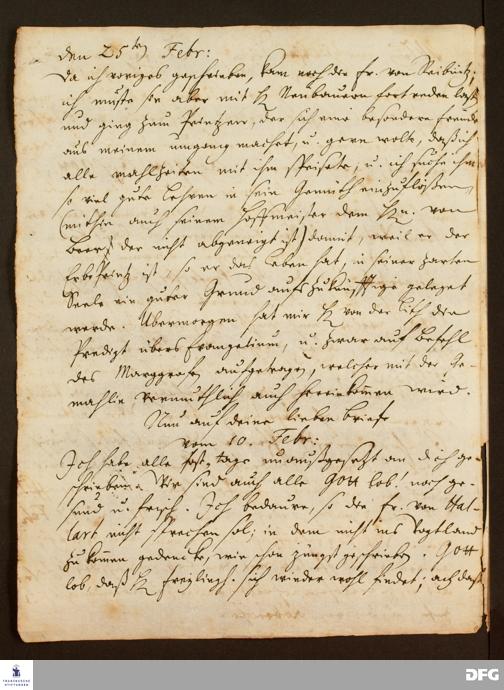 den 25ten Febr:
Da ich voriges geschrieben, kam noch die Fr. von Reibnitz;
ich muste sie aber mit H. Neubauern fortreden lasse
und ging zum Printzen, der sich eine besondere Freude
aus meinem umgang machet, u. gern wolte, daß ich
alle mahlzeiten mit ihm speisete, u. ich suche ihm
so viel gute Lehren in sein Gemüth einzuflößen,
(mithin auch seinem Hoffmeister dem Hn. von
der nicht abgeneigt ist) damit, weil er der
Erbprintz ist, so er das Leben hat, in seiner zarten
Seele ein guter Grund aufs zukünfftige geleget
werde. Übermorgen hat mir H. von der Lith die
Predigt übers Evangelium, u. zwar auf Befehl
des Marggrafen aufgetragen, welcher mit der Ge-
mahlin vermuthlich auch hereinkommen wird.
Nun auf deine lieben Briefe
vom 10. Febr:
Ich habe alle post-tage unausgesetzt an dich ge-
schrieben. Wir sind auch alle Gott lob! noch ge-
sund u. frisch. Ich bedaure, so die Fr. von Hal-
lart nicht sprechen sol, in dem nicht ins Vogtland
zu kommen gedencke, wie schon jüngst geschrieben. Gott
lob, daß H. Freylingh. sich wieder wohl findet; ach daß
FRANCKESCHE STIFTUNGEN
DFG